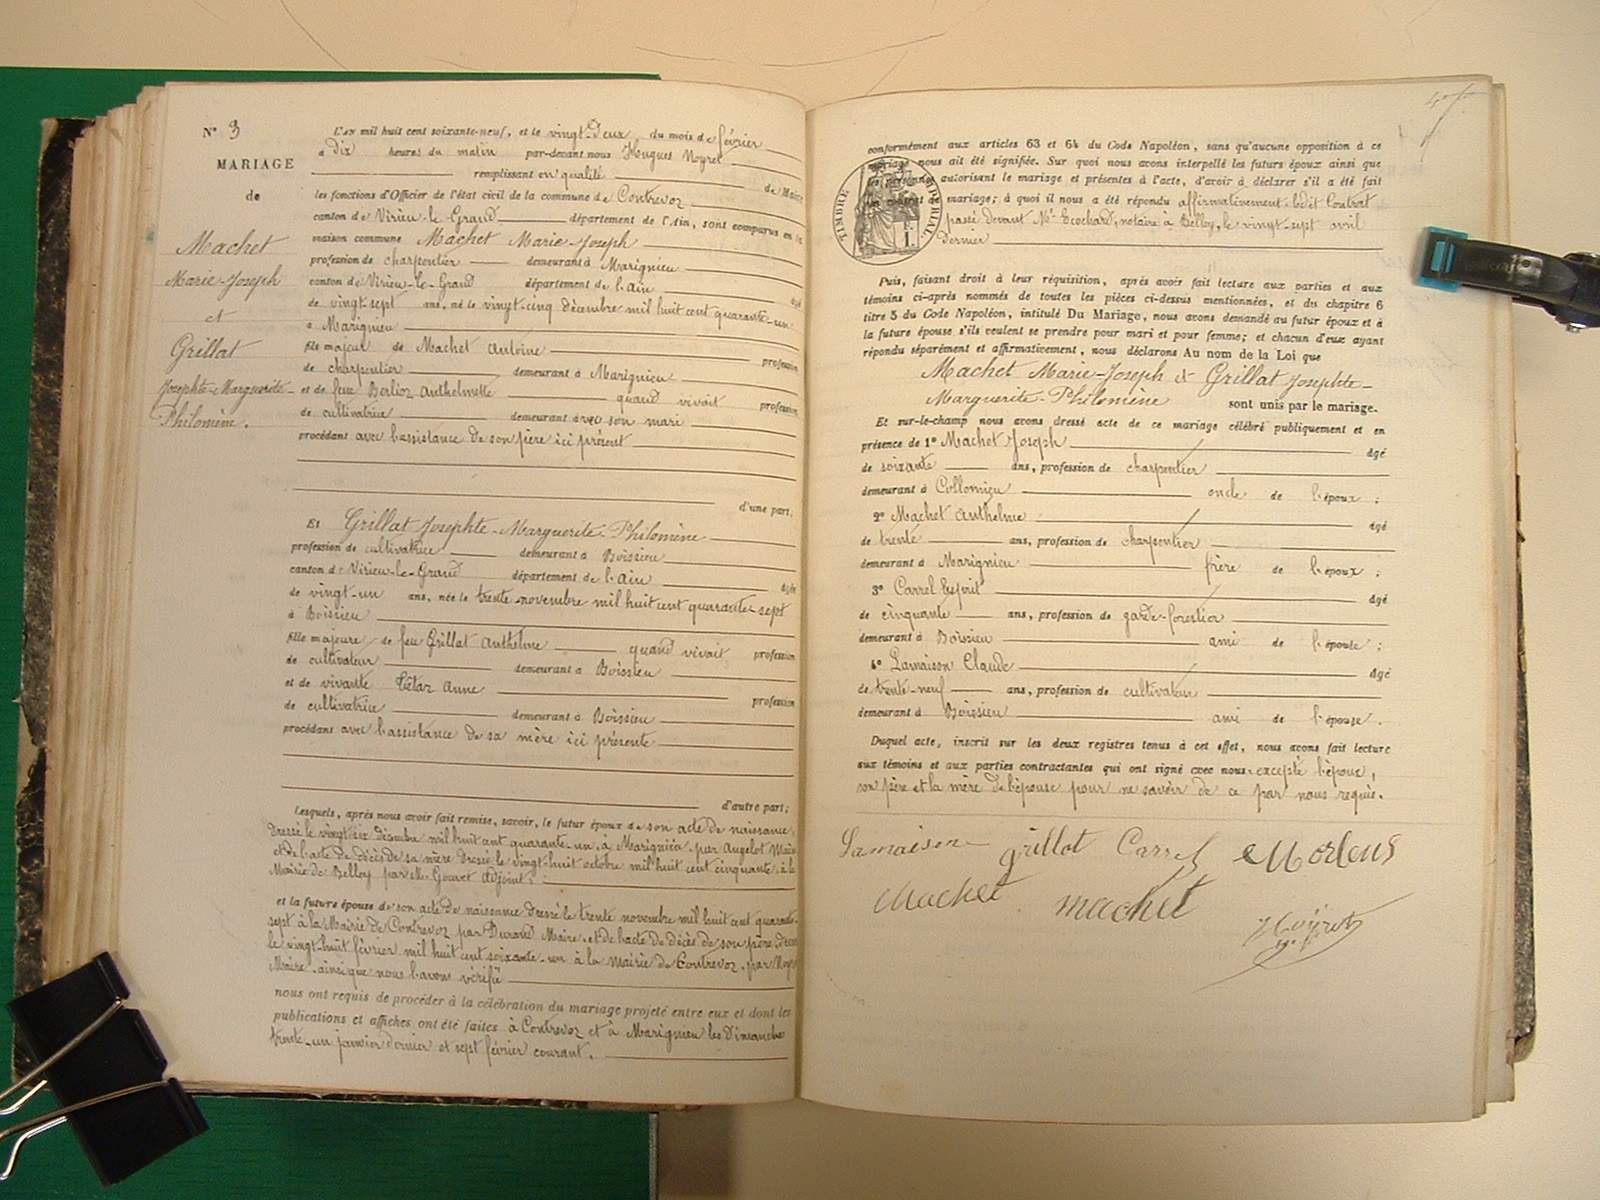 N° 3
MARIAGE
de
Machet
Marie-Joseph
et
Grillat
Josephte-Marguerite-
Philomène.
L'an mil huit cent soixante-neuf, et le vingt-deux du mois de février
à dix heures du matin par-devant nous Hugues Noyret
remplissant en qualité de Maire
les fonctions d'Officier de l'état civil de la commune de Contrevoz
canton de Virieu-le-Grand département de l'Ain, sont comparus en la
maison commune Machet Marie-Joseph
profession de charpentier demeurant à Marignieu
canton de Virieu-le-Grand département de l'ain âgé
de vingt-sept ans, né le vingt-cinq décembre mil huit cent quarante-un
à Marignieu
fils majeur de Machet Antoine profession
de charpentier demeurant à Marignieu
et de feue Berlioz Anthelmette quand vivait profession
de cultivatrice demeurant avec son mari
procédant avec l'assistance de son père ici présent
d'une part,
Et Grillat Josephte-Marguerite-Philomène
profession de cultivatrice demeurant à Boissieu
canton de Virieu-le-Grand département de l'ain âgée
de vingt-un ans, née le trente novembre mil huit cent quarante-sept
à Boissieu
fille majeure de feu Grillat Anthelme quand vivait profession
de cultivateur demeurant à Boissieu
et de vivante Tétaz Anne profession
de cultivatrice demeurant à Boissieu
procédant avec l'assistance de sa mère ici présente
d'autre part;
Lesquels, après nous avoir fait remise, savoir, le futur époux de son acte de naissance,
dressé le vingt-six décembre mil huit cent quarante-un, à Marignieu par Angelot Maire
et de l'acte de décès de sa mère dressé le vingt-huit octobre mil huit cent cinquante, à la
Mairie de Belley par Mr Gouvet Adjoint;
et la future épouse de son acte de naissance dressé le trente novembre mil huit cent quarante-
sept à la Mairie de Contrevoz par Durand Maire et de l'acte de décès de son père, dressé
le vingt-huit février mil huit cent soixante-un à la mairie de Contrevoz, par
Maire, ainsi que nous l'avons vérifié
nous ont requis de procéder à la célébration du mariage projeté entre eux et dont les
publications et affiches ont été faites à Contrevoz et à Marignieu les Dimanche
trente-un janvier dernier et sept février courant.
conformément aux articles 63 et 64 du Code Napoléon, sans qu'aucune opposition à ce
mariage nous ait été signifiée. Sur quoi nous avons interpellé les futurs époux ainsi que
les personnes autorisant le mariage et présentes à l'acte, d'avoir à déclarer s'il a été fait
un contrat de mariage; à quoi il nous a été répondu affirmativement ledit Contrat
passé devant Me Ecochard, notaire à Belley, le vingt-sept avril
dernier
TIMBRE IMPÉRIAL
Puis, faisant droit à leur réquisition, après avoir fait lecture aux parties et aux
témoins ci-après nommés de toutes les pièces ci-dessus mentionnées, et du chapitre 6
titre 5 du Code Napoléon, intitulé Du Mariage, nous avons demandé au futur époux et à
la future épouse s'ils veulent se prendre pour mari et pour femme; et chacun d'eux ayant
répondu séparément et affirmativement, nous déclarons Au nom de la Loi que
Machet Marie-Joseph & Grillat Josephte-
Marguerite-Philomène sont unis par le mariage.
Et sur-le-champ nous avons dressé acte de ce mariage célébré publiquement et en
présence de 1° Machet Joseph âgé
de soixante ans, profession de charpentier
demeurant à Collomieu oncle de l'époux ;
2° Machet Anthelme âgé
de trente ans, profession de charpentier
demeurant à Marignieu frère de l'époux ;
3° Carrel Esprit âgé
de cinquante ans, profession de garde-forestier
demeurant à Boissieu ami de l'épouse ;
4° Lamaison Claude âgé
de trente-neuf ans, profession de cultivateur
demeurant à Boissieu ami de l'épouse.
Duquel acte, inscrit sur les deux registres tenus à cet effet, nous avons fait lecture
aux témoins et aux parties contractantes qui ont signé avec nous excepté l'époux,
son père et la mère de l'épouse pour ne savoir de ce par nous requis.
Lamaison grillat Carrel
Machet machet Noyret